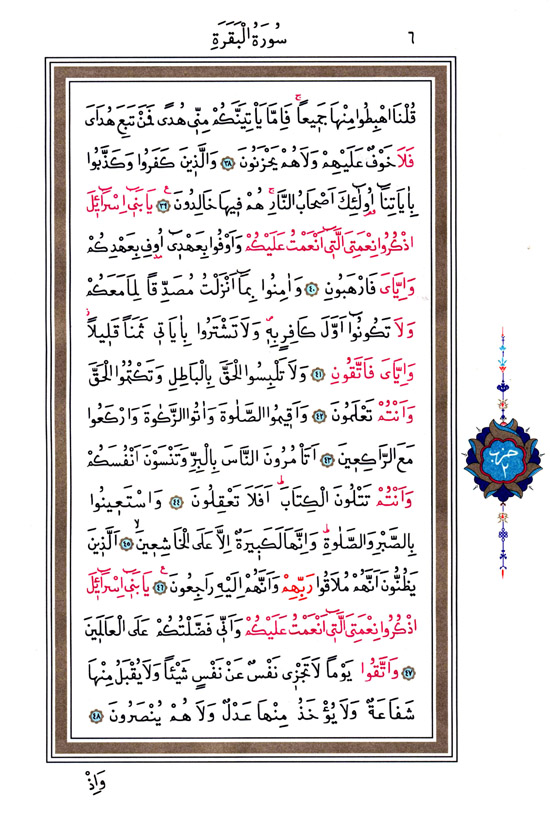 ٦
سُورَةُ الْبَقَرَةِ
قُلْنَا اهْبِطُوا مِنْهَا جَمٖيعاًۚ فَاِمَّا يَاْتِيَنَّكُمْ مِنّٖى هُدًى فَمَنْ تَبِعَ هُدَاىَ
فَلَا خَوْفٌ عَلَيْهِمْ وَلَا هُمْ يَحْزَنُونَ ﴿٣٨﴾ وَالَّذٖينَ كَفَرُوا وَكَذَّبُوا
بِاٰيَاتِنَٓا اُو۬لٰٓئِكَ اَصْحَابُ النَّارِۚ هُمْ فٖيهَا خَالِدُونَࣖ ﴿٣٩﴾ يَا بَنٖٓى اِسْرَٓائٖلَ
اذْكُرُوا نِعْمَتِىَ الَّتٖٓى اَنْعَمْتُ عَلَيْكُمْ وَاَوْفُوا بِعَهْدٖٓى اُو۫فِ بِعَهْدِكُمْ
وَاِيَّاىَ فَارْهَبُونِ ﴿٤٠﴾ وَاٰمِنُوا بِمَٓا اَنْزَلْتُ مُصَدِّقاً لِمَا مَعَكُمْ
وَلَا تَكُونُٓوا اَوَّلَ كَافِرٍ بِهٖۖ وَلَا تَشْتَرُوا بِاٰيَاتٖى ثَمَناً قَلٖيلاًۘ
وَاِيَّاىَ فَاتَّقُونِ ﴿٤١﴾ وَلَا تَلْبِسُوا الْحَقَّ بِالْبَاطِلِ وَتَكْتُمُوا الْحَقَّ
وَاَنْتُمْ تَعْلَمُونَ ﴿٤٢﴾ وَاَقٖيمُوا الصَّلٰوةَ وَاٰتُوا الزَّكٰوةَ وَارْكَعُوا
مَعَ الرَّاكِعٖينَ ﴿٤٣﴾ اَتَاْمُرُونَ النَّاسَ بِالْبِرِّ وَتَنْسَوْنَ اَنْفُسَكُمْ
وَاَنْتُمْ تَتْلُونَ الْكِتَابَۜ اَفَلَا تَعْقِلُونَ ﴿٤٤﴾ وَاسْتَعٖينُوا
بِالصَّبْرِ وَالصَّلٰوةِۜ وَاِنَّهَا لَكَبٖيرَةٌ اِلَّا عَلَى الْخَاشِعٖينَۙ ﴿٤٥﴾ اَلَّذٖينَ
يَظُنُّونَ اَنَّهُمْ مُلَاقُوا رَبِّهِمْ وَاَنَّهُمْ اِلَيْهِ رَاجِعُونَࣖ ﴿٤٦﴾ يَا بَنٖٓى اِسْرَٓائٖلَ
اذْكُرُوا نِعْمَتِىَ الَّتٖٓى اَنْعَمْتُ عَلَيْكُمْ وَاَنّٖى فَضَّلْتُكُمْ عَلَى الْعَالَمٖينَ
﴿٤٧﴾ وَاتَّقُوا يَوْماً لَا تَجْزٖى نَفْسٌ عَنْ نَفْسٍ شَيْـٔاً وَلَا يُقْبَلُ مِنْهَا
شَفَاعَةٌ وَلَا يُؤْخَذُ مِنْهَا عَدْلٌ وَلَا هُمْ يُنْصَرُونَ ﴿٤٨﴾
وَاِذْ
حزب
٢